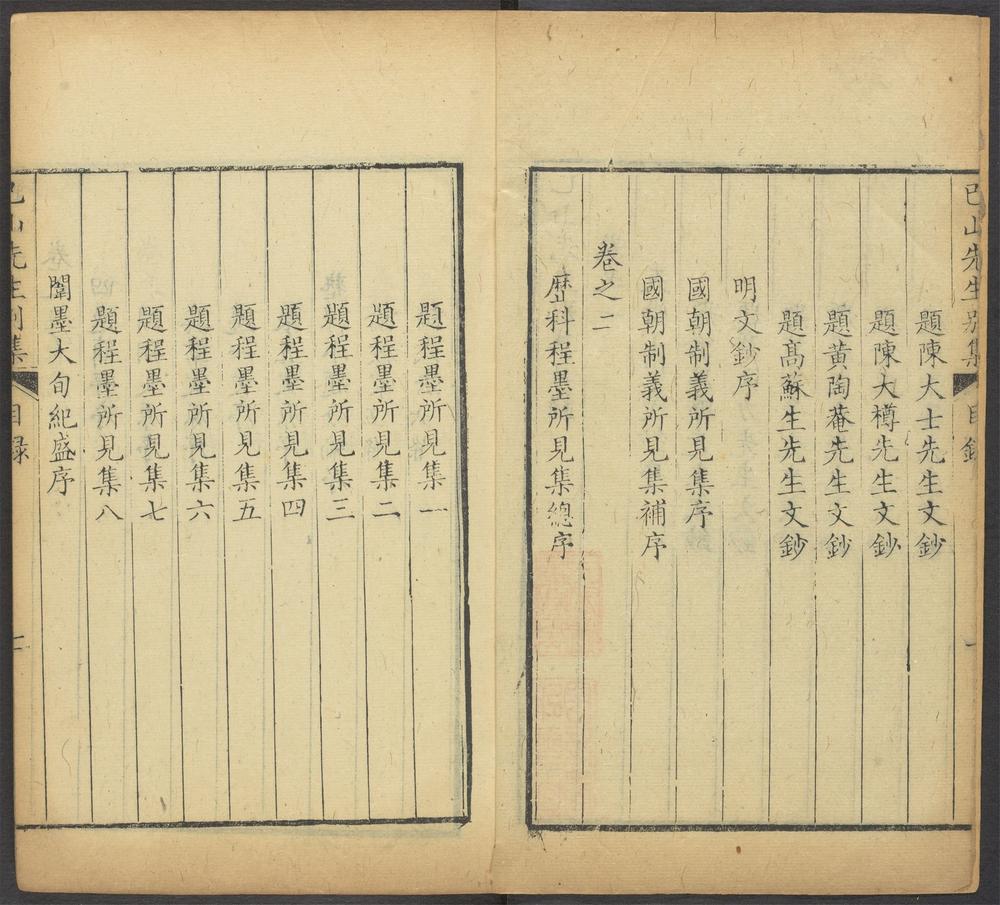 巳山先生別集 目錄 一
題陳大士先生文鈔
題陳大樽先生文鈔
題黄陶菴先生文鈔
題髙蘇生先生文鈔
明文鈔序
國朝制義所見集序
國朝制義所見集補序
卷之二
歴科程墨所見集總序
題程墨所見集一
題程墨所見集二
題程墨所見集三
題程墨所見集四
題程墨所見集五
題程墨所見集六
題程墨所見集七
題程墨所見集八
闈墨大旬紀盛序
巳山先生別集 目録